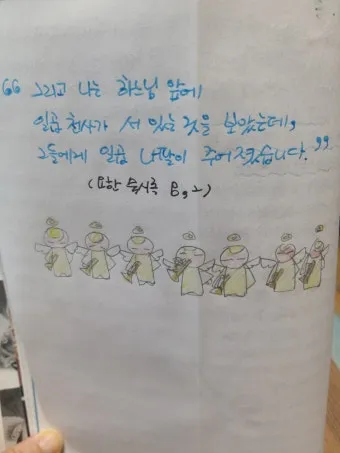 “ 그리고 나는 하느님 앞에
일곱 천사가 서 있는 것을 보았는데,
그들에게 일곱 나팔이 주어졌습니다. ”
(요한 묵시록 8, 2)